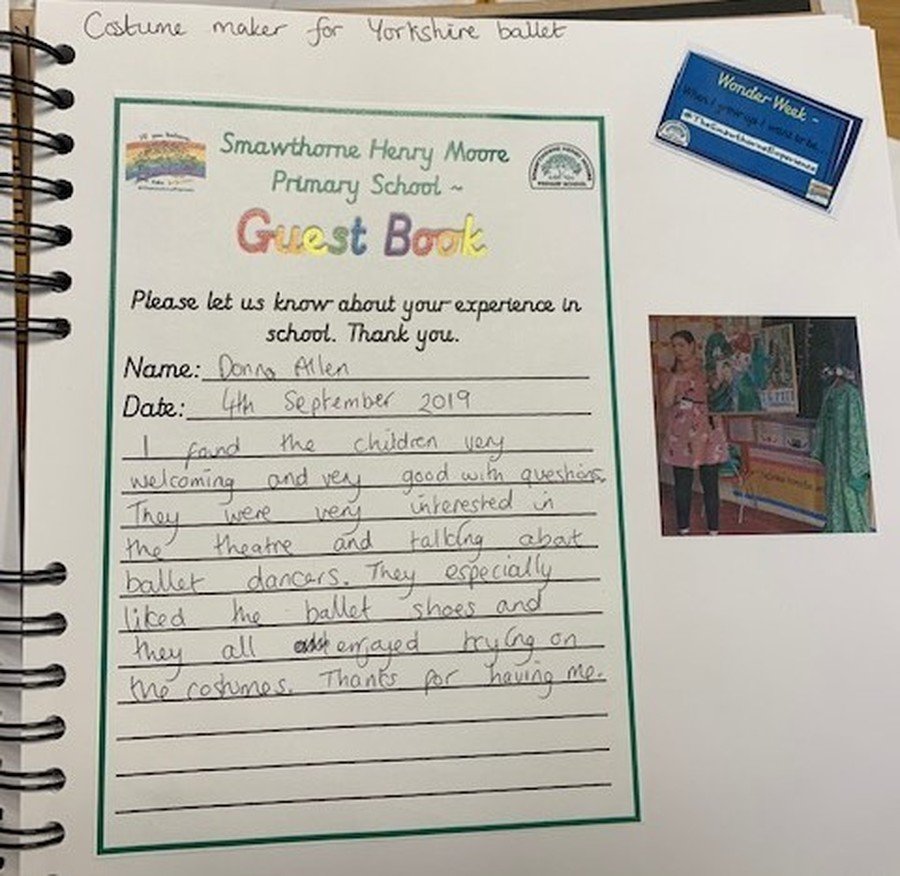 Costume maker for Yorkshire ballet
Wonder Week ~
When I grow up I want to be...
#TheSmawthorneExperience
Smawthorne Henry Moore
Primary School ~
PRIMARY SCHOOL
Guest Book
Please let us know about your experience in
school. Thank you.
Name: Donna Allen
Date: 4th September 2019
I found the children very
welcoming and very good with questions.
They were very interested in
the theatre and talking about
ballet dancers. They especially
liked the ballet shoes and
they all enjoyed trying on
the costumes. Thanks for having me.